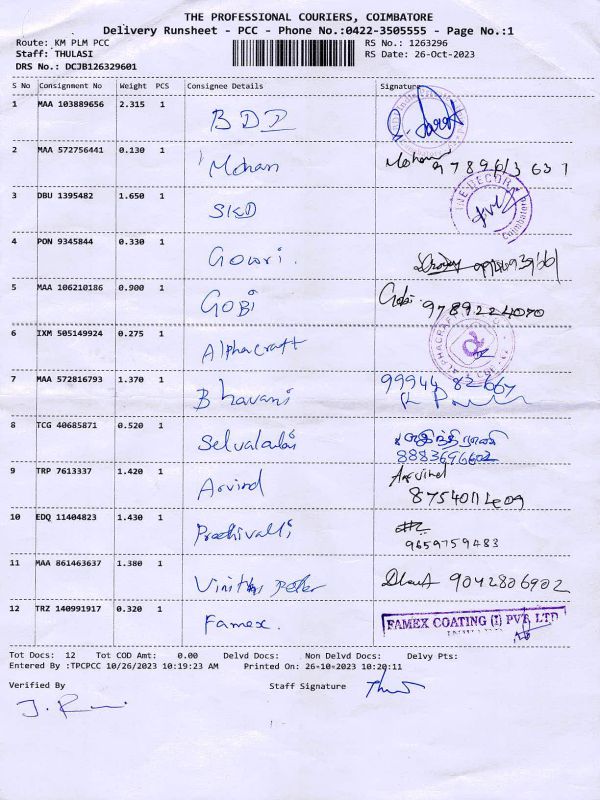 THE PROFESSIONAL COURIERS, COIMBATORE
Delivery Runsheet - PCC - Phone No.:0422-3505555 - Page No.:1
Route: KM PLM PCC RS No.: 1263296
Staff: THULASI RS Date: 26-Oct-2023
DRS No.: DCJB126329601
S No Consignment No Weight PCS Consignee Details Signature
1 MAA 103889656 2.315 1
2 MAA 572756441 0.130 1 Mohan Mohan
3 DBU 1395482 1.650 1 SKD INE DECOR Coimbatore
4 PON 9345844 0.330 1 Gowri.
5 MAA 106210186 0.900 1 GOBI Gobi 9789224070
6 IXM 505149924 0.275 1 Alphacraft ALPHACRAFT
7 MAA 572816793 1.370 1 Bhavani 99944 82667
8 TCG 40685871 0.520 1 8883696602
9 TRP 7613337 1.420 1 Arvind Arvind
8754011409
10 EDQ 11404823 1.430 1
9659759483
11 MAA 861463637 1.380 1 Peter 9042806902
12 TRZ 140991917 0.320 1 Famex. FAMEX COATING (I) PVT. LTD
Tot Docs: 12 Tot COD Amt: 0.00 Delvd Docs: Non Delvd Docs: Delvy Pts:
Entered By :TPCPCC 10/26/2023 10:19:23 AM Printed On: 26-10-2023 10:20:11
Verified By Staff Signature